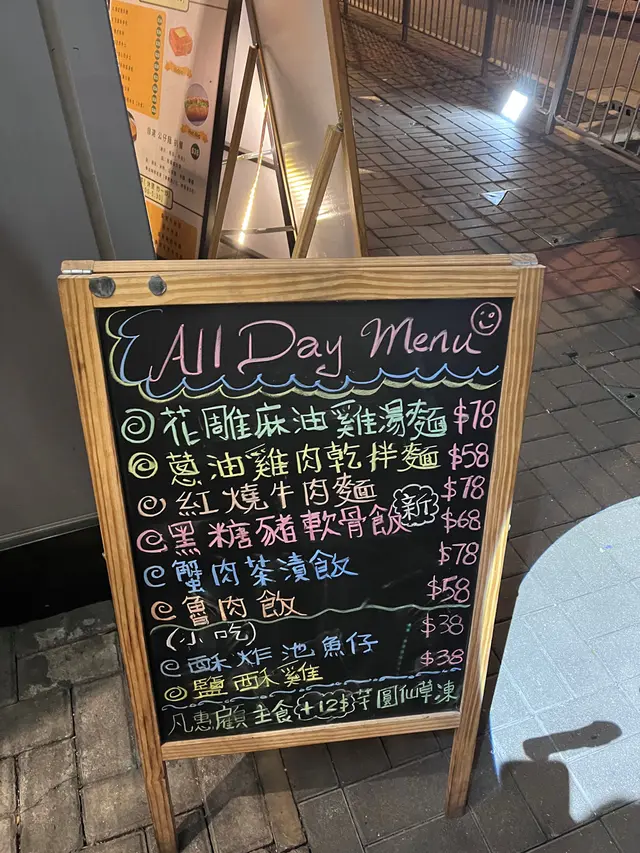 All Day Menu
花雕麻油雞湯麵 $78
蔥油雞肉乾拌麵 $58
紅燒牛肉麵 $78
黑糖豬軟骨飯 新 $68
蟹肉菜漬飯 $78
魯肉飯 $58
(小吃)
酥炸池魚仔 $38
鹽酥雞 $38
凡惠顧主食+12$芋圓仙草凍